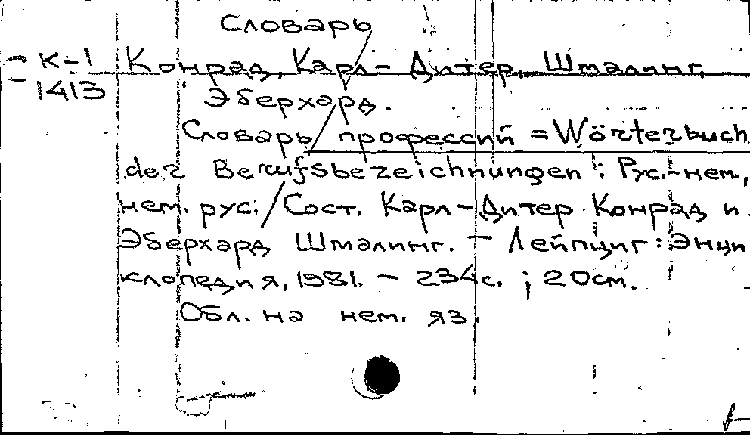 Словарь
К-1 Конрад, Карл-Дитер, Шмалинг,
1413 Эберхард.
Словарь профессий = Wörterbuch
der Berufsbezeichnungen: Рус.-нем,
нем. рус. / Сост. Карл-Дитер Конрад и
Эберхард Шмалинг. - Лейпциг: Энци
клопедия, 1981. - 234с. ; 20см.
Обл. на нем. яз.